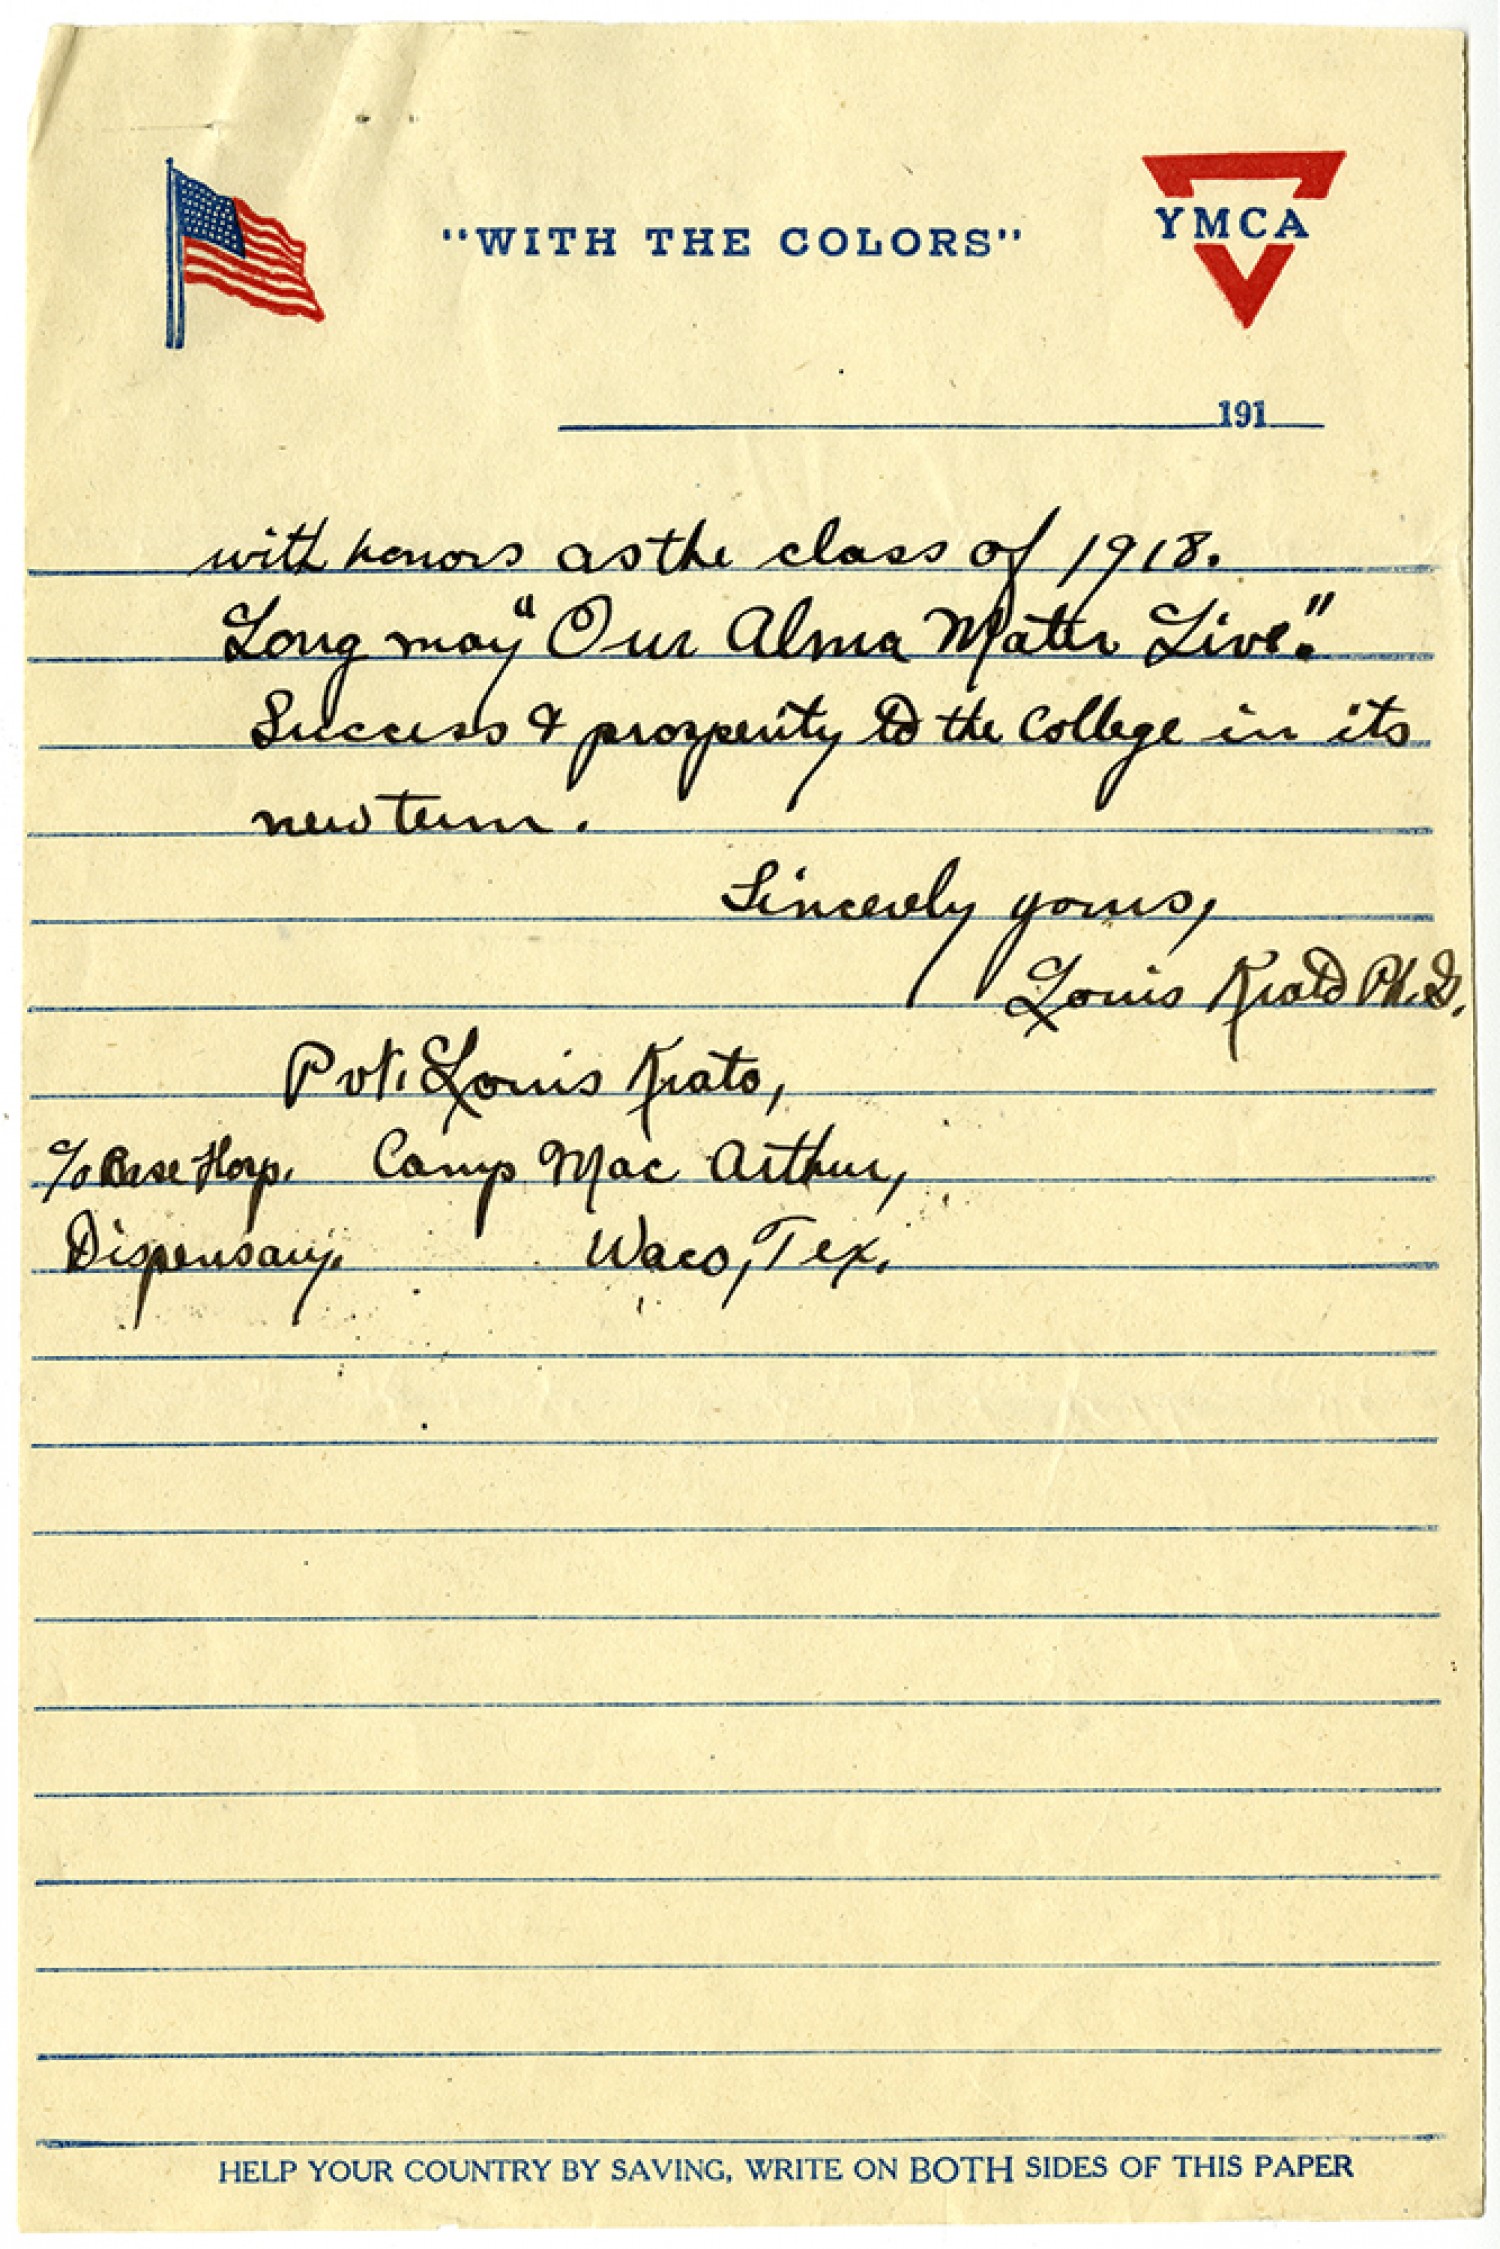 "WITH THE COLORS"
YMCA
191
with honors as the class of 1918.
Long may "Our Alma Mater Live."
Success & prosperity to the College in its
new term.
Sincerely yours,
Louis Krato Ph.G.
Pvt. Louis Krato,
c/o Base Hosp. Camp Mac Arthur,
Dispensary. Waco, Tex.
HELP YOUR COUNTRY BY SAVING, WRITE ON BOTH SIDES OF THIS PAPER